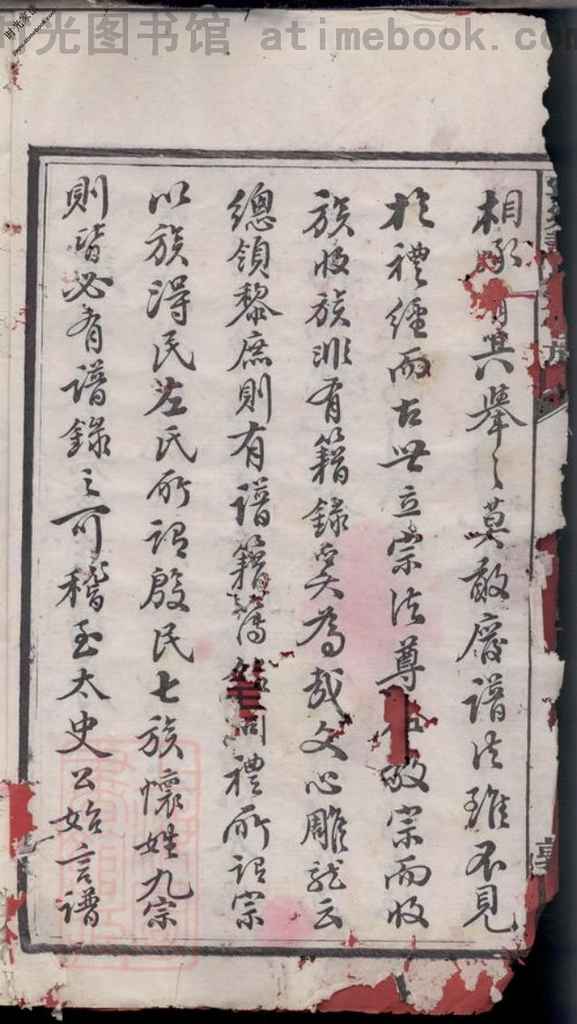 时光图书馆 atimebook.com
相承有其舉之莫敢廢譜法雖不見
於禮經而古世立宗法尊祖敬宗而收
族收族非有籍錄奚為哉文心雕龍云
總領黎庶則有譜籍簿錄周禮所謂宗
以族得民左氏所謂殷民七族懷姓九宗
則皆必有譜錄之可稽至太史公始言譜